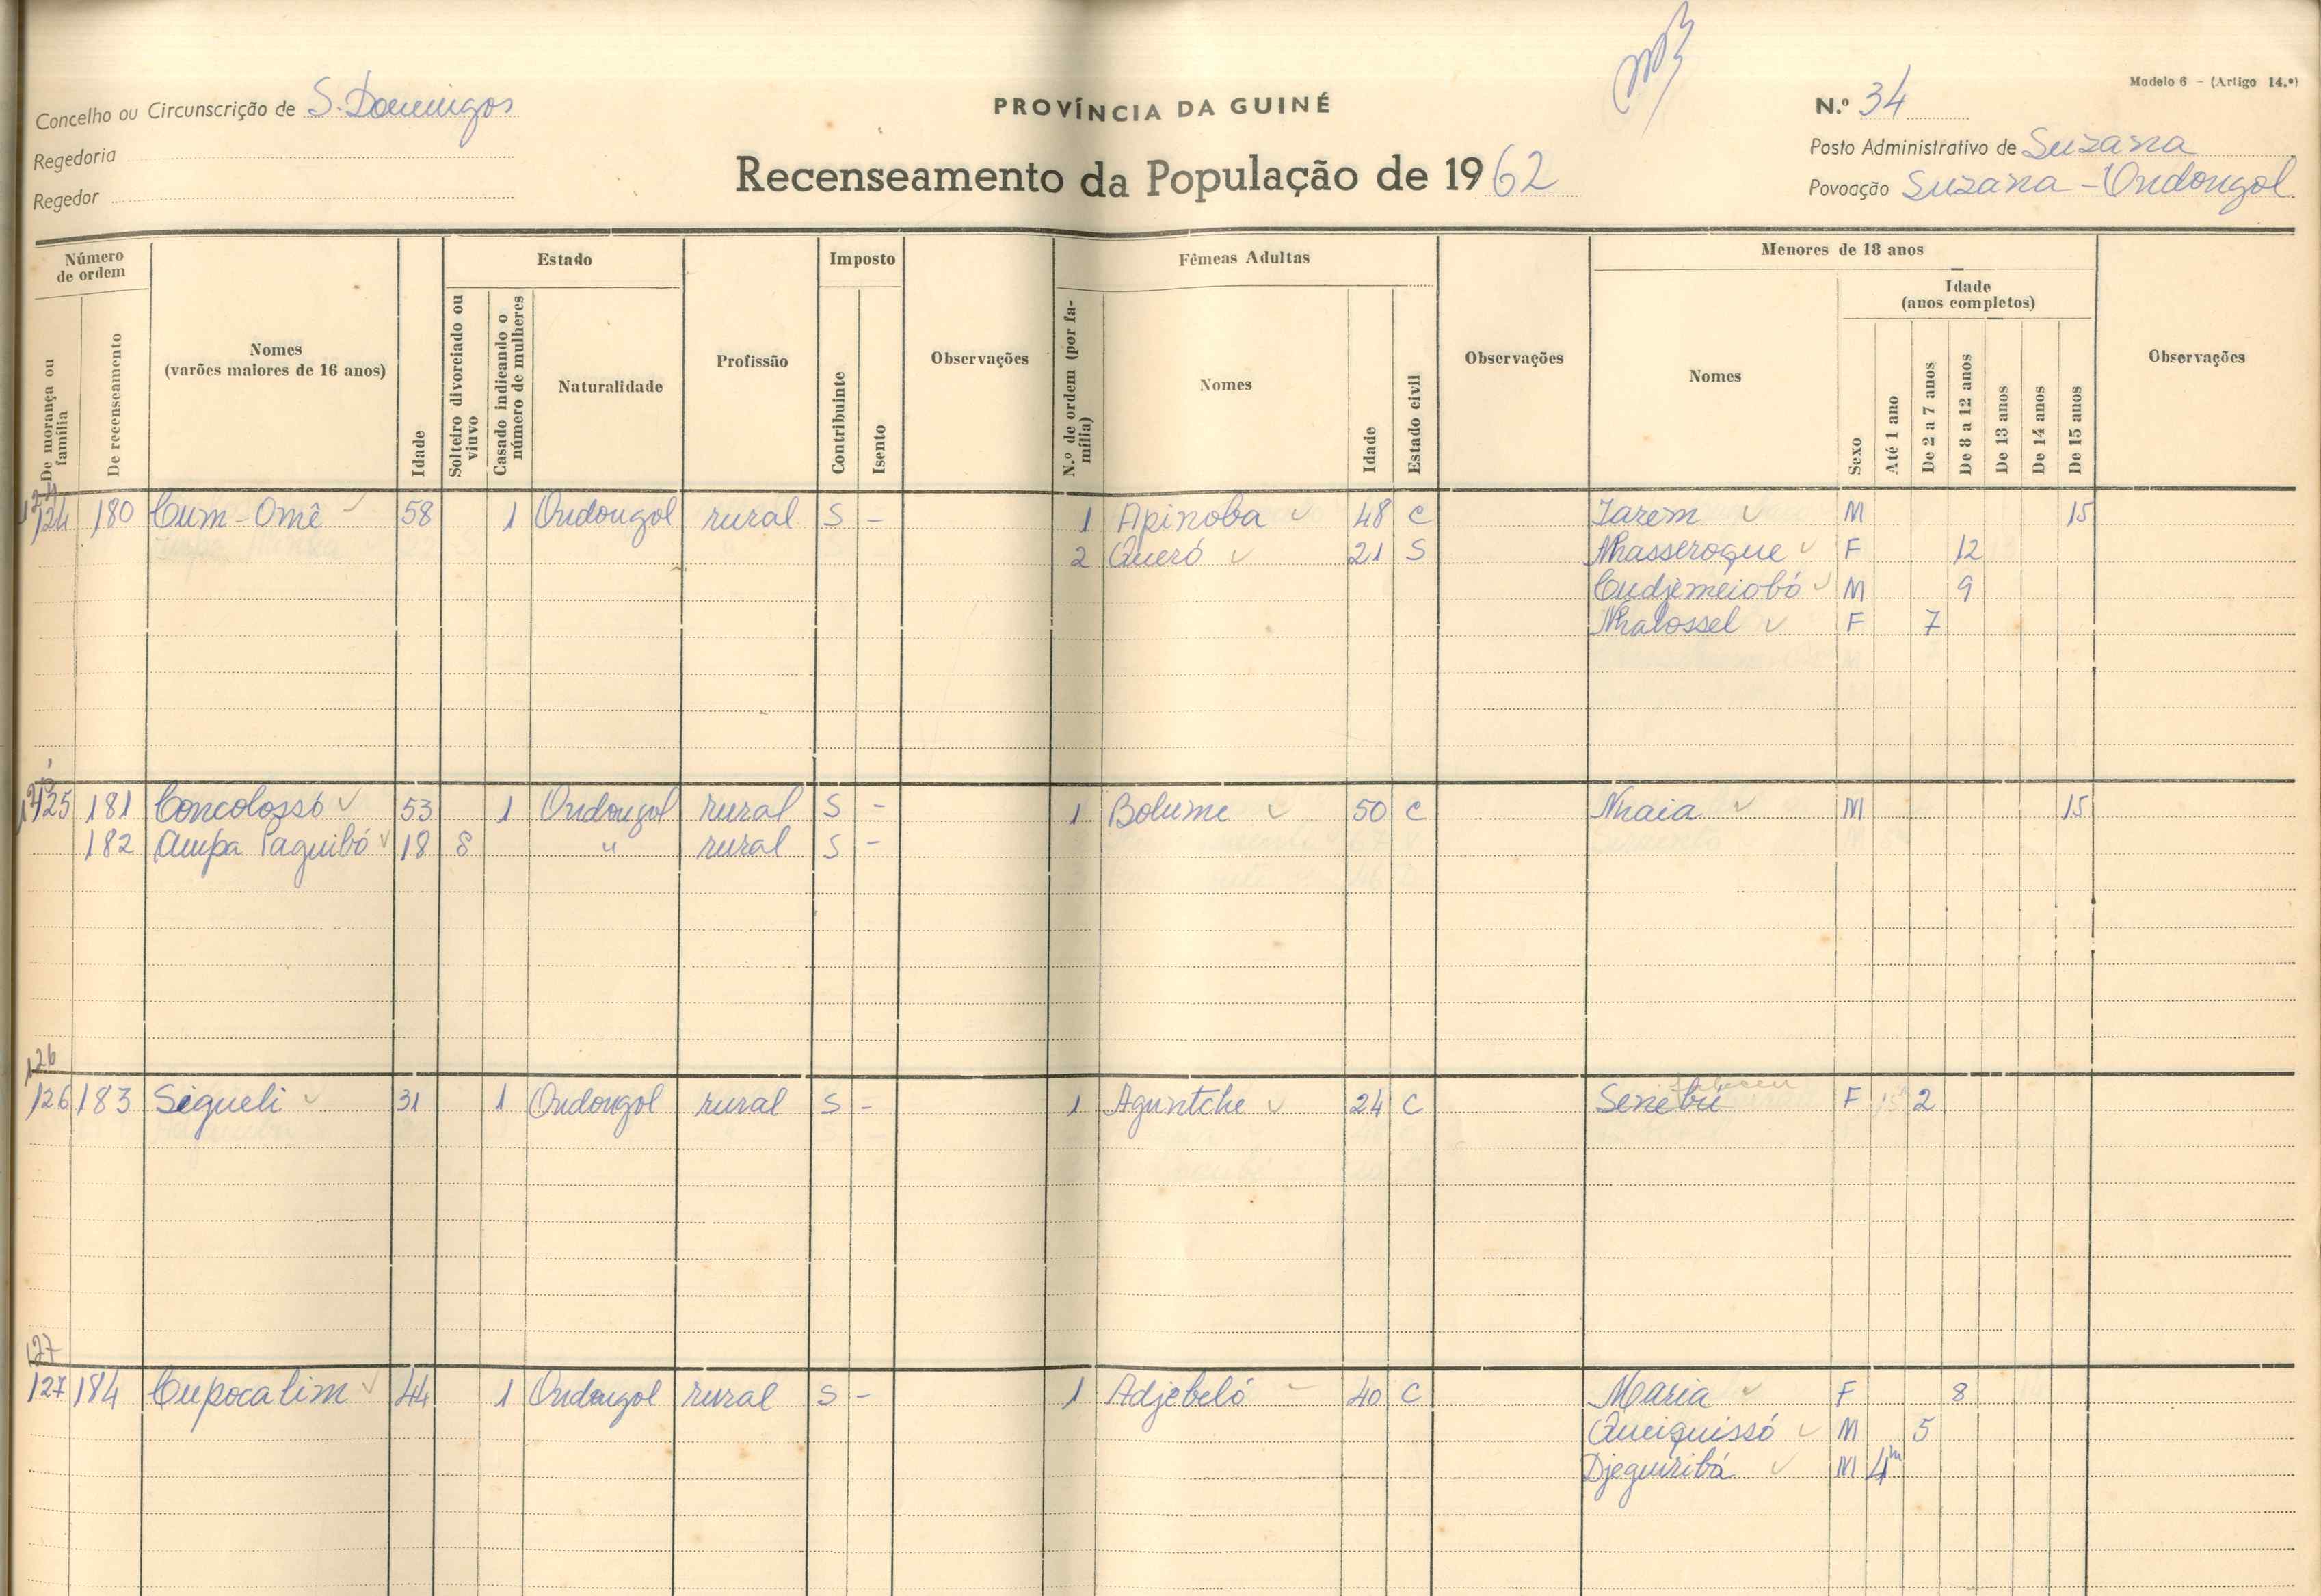 Modelo 6 - (Artigo 14.º)
Concelho ou Circunscrição de S. Domingos
PROVÍNCIA DA GUINÉ
N.º 34
Regedoria
Posto Administrativo de Suzana
Regedor
Recenseamento da População de 1962
Povoação Suzana - Ondongol
Número de ordem
De morança ou família
De recenseamento
Nomes
(varões maiores de 16 anos)
Idade
Estado
Solteiro divorciado ou viuvo
Casado indicando o número de mulheres
Naturalidade
Profissão
Imposto
Contribuinte
Isento
Observações
Fêmeas Adultas
N.º de ordem (por família)
Nomes
Idade
Estado civil
Observações
Menores de 18 anos
Nomes
Sexo
Idade
(anos completos)
Até 1 ano
De 2 a 7 anos
De 8 a 12 anos
De 13 anos
De 14 anos
De 15 anos
Observações
124 180 Cum-Omê 58 1 Ondongol rural S - 1 Apinoba 48 C Jarem M 15
2 Queró 21 S Nhasseroque F 12
Cudjemeiobó M 9
Nhalossel F 7
125 181 Concolossó 53 1 Ondongol rural S - 1 Bolume 50 C Nhaia M 15
182 Ampa Paguibó 18 S " rural S -
126
126 183 Sigueli 31 1 Ondongol rural S - 1 Aguntche 24 C Senebú F 2
127
127 184 Cupocalim 44 1 Ondongol rural S - 1 Adjebeló 40 C Maria F 8
Queiquissó M 5
Djeguiribá M 4m